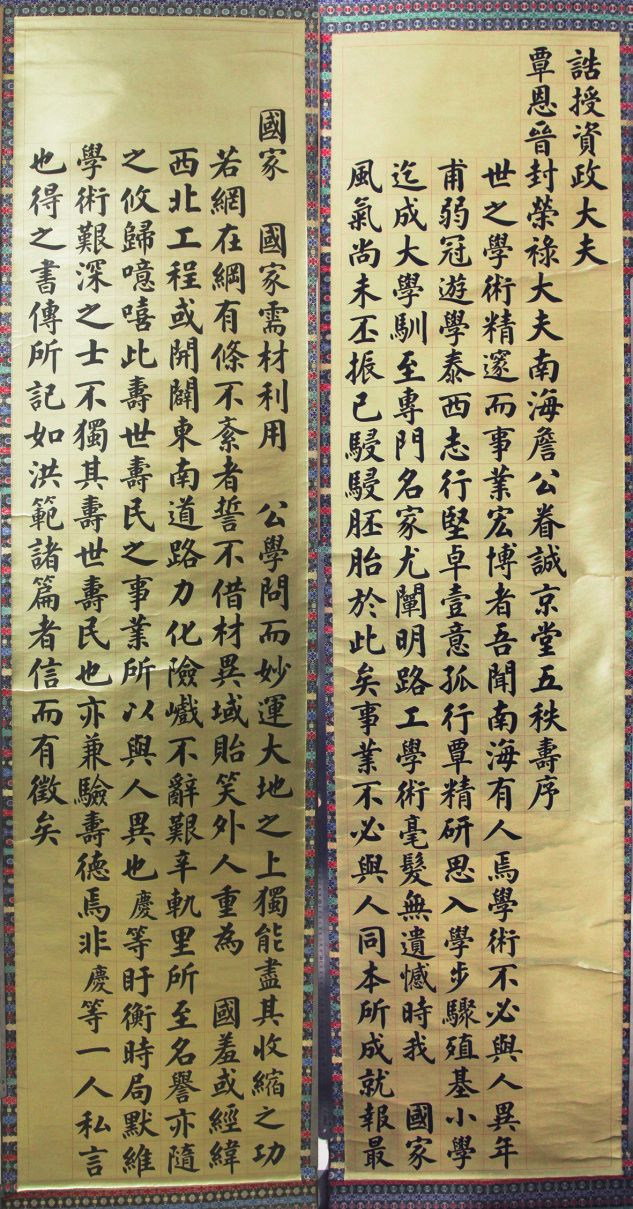 誥授資政大夫
覃恩晉封榮祿大夫南海詹公眷誠京堂五秩壽序
世之學術精邃而事業宏博者吾聞南海有人焉學術不必與人異年
甫弱冠遊學泰西志行堅卓壹意孤行覃精研思入學步驟殖基小學
迄成大學馴至專門名家尤闡明路工學術毫髮無遺憾時我 國家
風氣尚未丕振已駸駸胚胎於此矣事業不必與人同本所成就報最
國家 國家需材利用 公學問而妙運大地之上獨能盡其收縮之功
若網在綱有條不紊者誓不借材異域貽笑外人重為 國羞或經緯
西北工程或開闢東南道路力化險巇不辭艱辛軌里所至名譽亦隨
之攸歸噫嘻此壽世壽民之事業所以與人異也慶等盱衡時局默維
學術艱深之士不獨其壽世壽民也亦兼驗壽德焉非慶等一人私言
也得之書傳所記如洪範諸篇者信而有徵矣